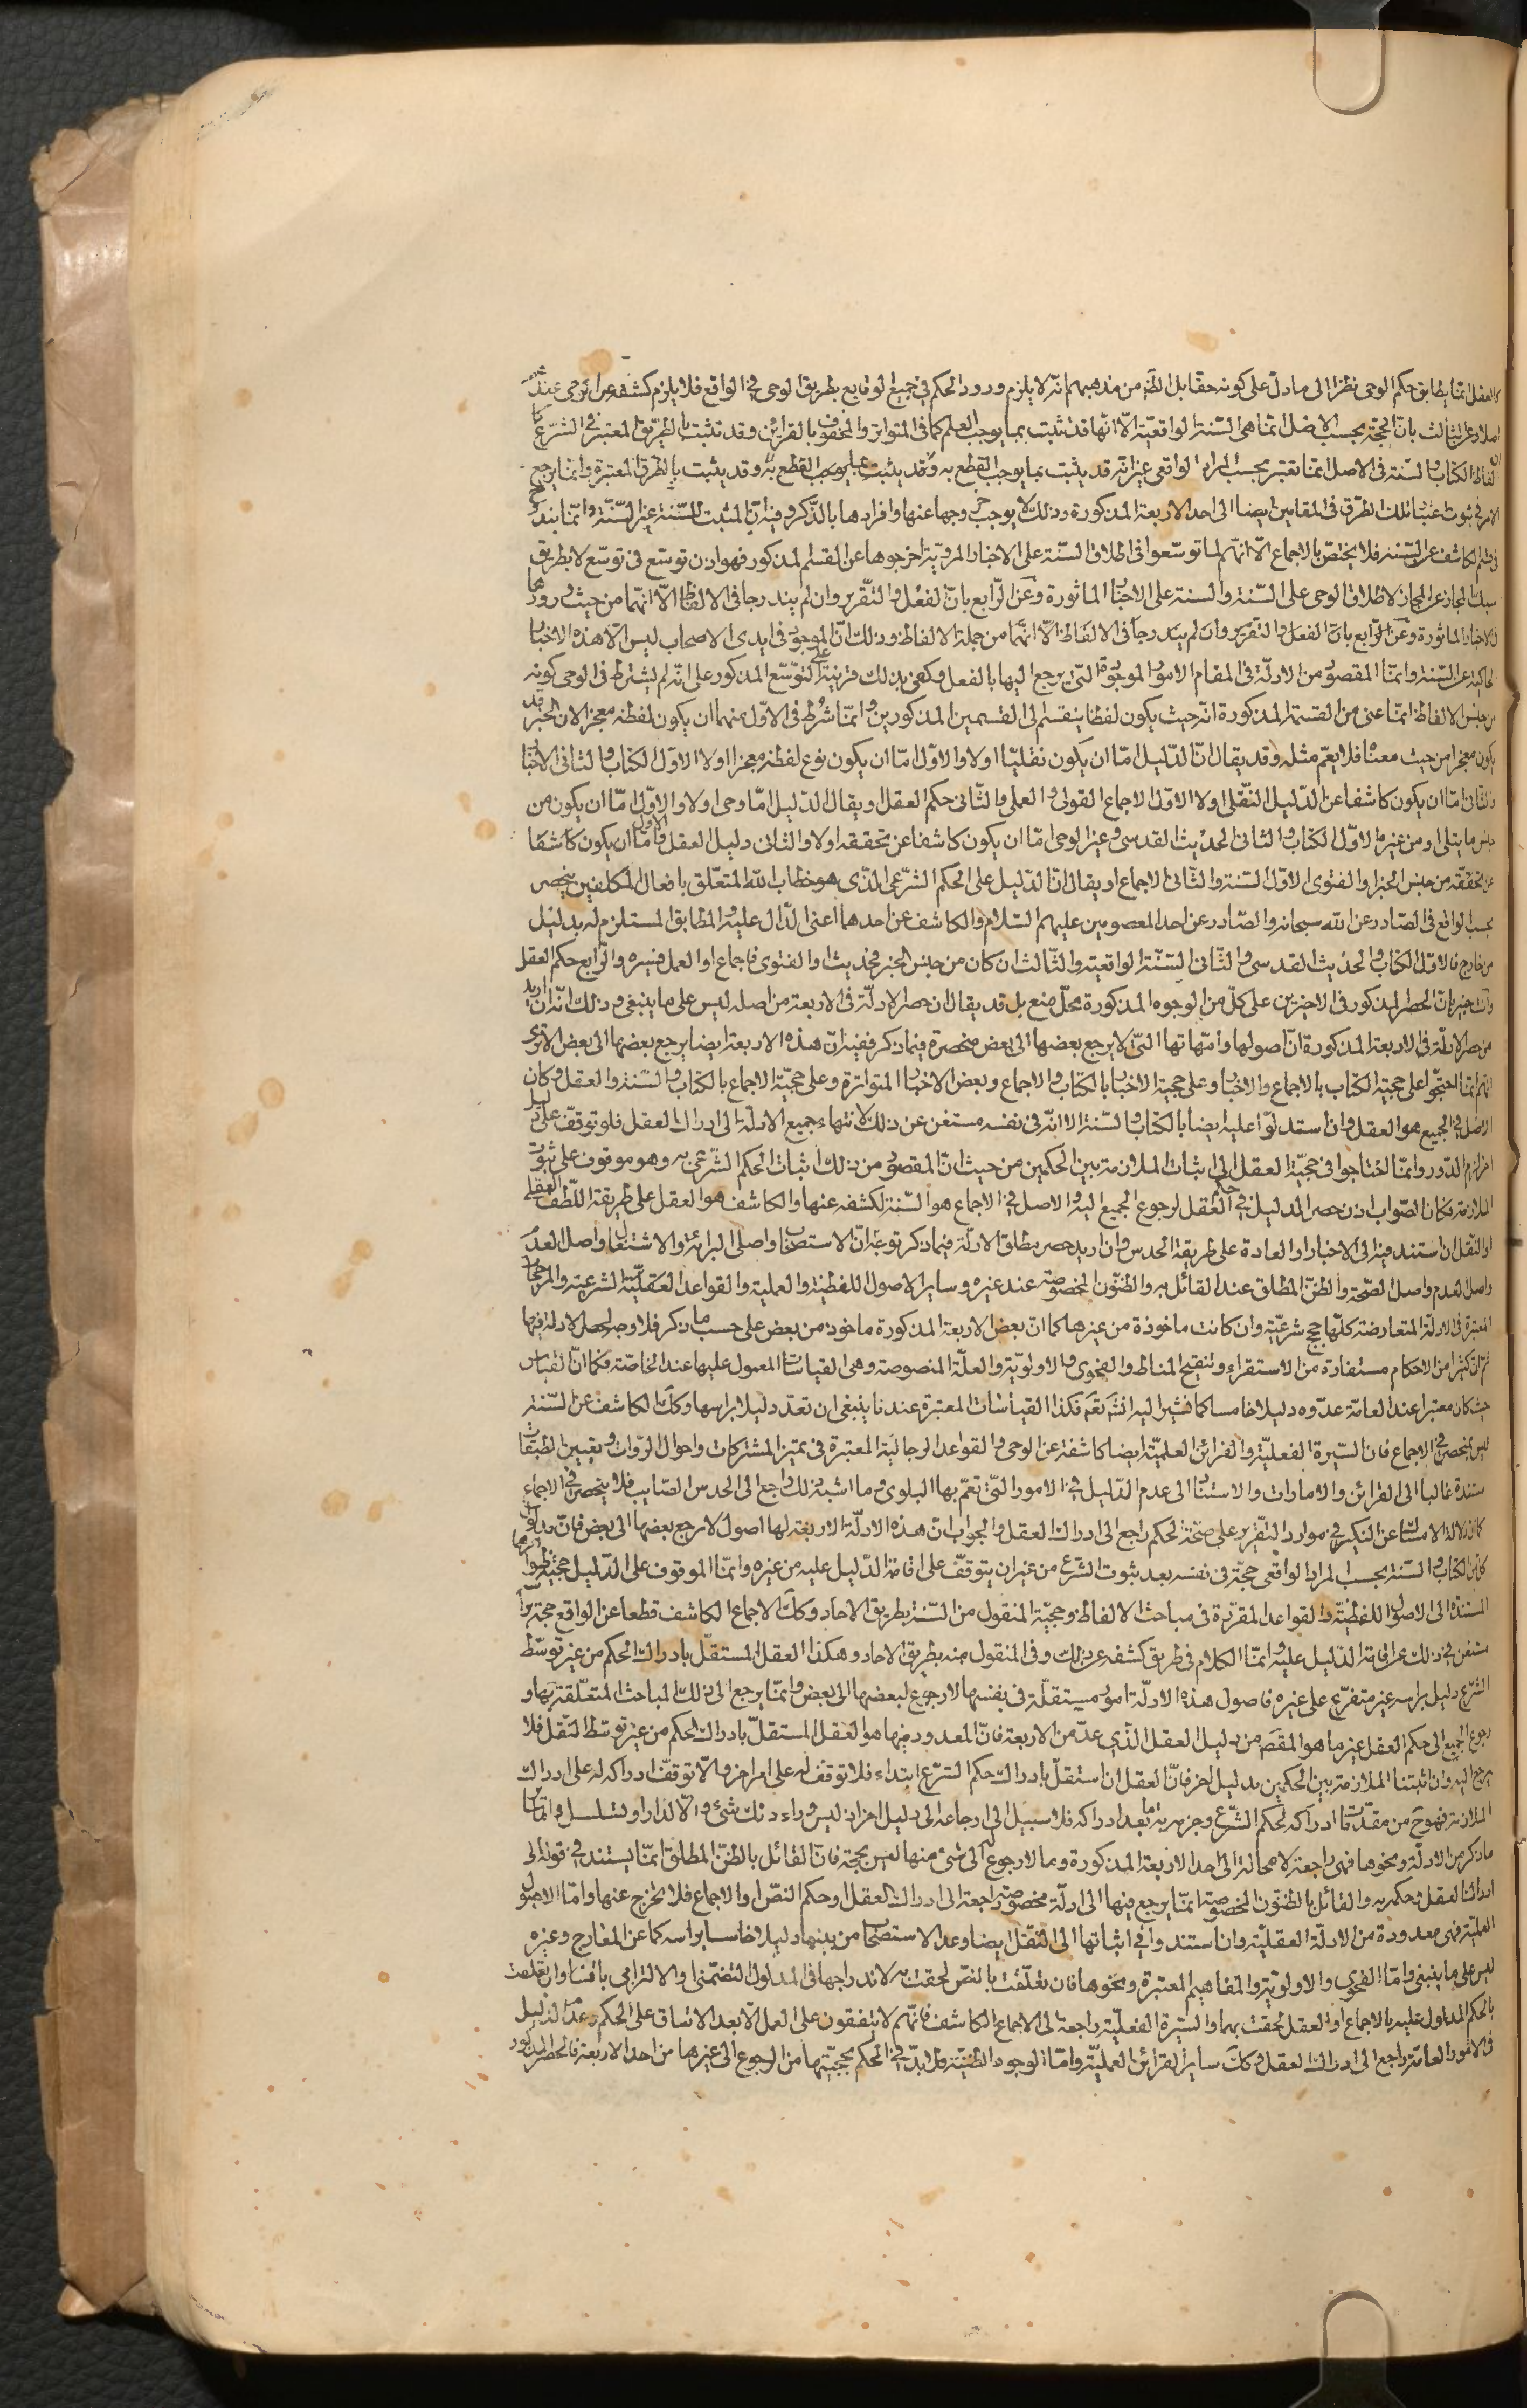 كالعقل انما يطابق حكم الوحى نظرا الى ما دل على كونه حقا بل الظ من مذهبهم انه لا يلزم ورود الحكم في جميع الوقايع بطريق الوحى في الواقع فلا يلزم كشفه عن الوحى عند
وعن الثالث بان الحجة بحسب الاصل انما هى السنة الواقعية الا انها قد تثبت بما يوجب العلم كما فى المتواتر والمحفوف بالقراين وقد تثبت بالطريق المعتبر فى الشرع كما
الفاظ الكتاب والسنة فى الاصل انما تعتبر بحسب المراد الواقعى غير انه قد يثبت بما يوجب القطع به وقد يثبت بالطرق المعتبرة وانما يرجع
الامر فى ثبوت اعتبار تلك الطرق فى المقامين ايضا الى احد الاربعة المذكورة وذلك لا يوجب خروجها عنها وافرادها بالذكر وفيه ان المثبت للسنة غير السنة وانما يندرج
فى قسم الكاشف عن السنة فلا يختص بالاجماع الا انهم لما توسعوا فى اطلاق السنة على الاخبار المروية اخرجوها عن القسم المذكور فهو اذن توسع فى توسع لا بطريق
سبك المجاز عن المجاز لاطلاق الوحى على السنة والسنة على الاخبار الماثورة وعن الرابع بان الفعل والتقرير وان لم يندرجا فى الالفاظ الا انهما من حيث ورودهما
فى الاخبار الماثورة وعن الرابع بان الفعل والتقرير وان لم يندرجا فى الالفاظ الا انهما من جملة الالفاظ وذلك ان الموجود فى ايدى الاصحاب ليس الا هذه الاخبار
الحاكية عن السنة وانما المقصود من الادلة فى المقام الامور الموجودة التى يرجع اليها بالفعل وكفى بذلك قرينة على التوسع المذكور على انه لم يشترط فى الوحى كونه
من جنس الالفاظ انما عنى من القسمة المذكورة انه حيث يكون لفظا ينقسم الى القسمين المذكورين وانما شرط فى الاول منهما ان يكون لفظه معجزا لان الخبر قد
يكون معجزا من حيث معناه فلا يعم مثله وقد يقال ان الدليل اما ان يكون نقليا او لا والاول اما ان يكون نوع لفظه معجزا او لا الاول الكتاب والثانى الاخبار
والثانى اما ان يكون كاشفا عن الدليل النقلى او لا الاول الاجماع القولى والعملى والثانى حكم العقل او يقال الدليل اما وحى او لا والاول اما ان يكون من
جنس ما يتلى او من غيره الاول الكتاب والثانى الحديث القدسى وغير الوحى اما ان يكون كاشفا عن تحققه او لا والثانى دليل العقل والاول اما ان يكون كاشفا
عن تحققه من جنس الخبر او الفتوى الاول السنة والثانى الاجماع او يقال ان الدليل على الحكم الشرعى الذى هو خطاب الله المتعلق بافعال المكلفين ينحصر
بحسب الواقع فى الصادر عن الله سبحانه والصادر عن احد المعصومين عليهم السلام والكاشف عن احدهما اعنى الدال عليه والمطابق المستلزم له بدليل
من خارج فالاول الكتاب والحديث القدسى والثانى السنة الواقعية والثالث ان كان من جنس الخبر فحديث او الفتوى فاجماع او العمل فسيرة والرابع حكم العقل
وانت خبير بان الحصر المذكور فى الاخيرين على كل من الوجوه المذكورة محل منع بل قد يقال ان حصر الادلة فى الاربعة من اصله ليس على ما ينبغى وذلك انه ان اريد
من حصر الادلة فى الاربعة المذكورة ان اصولها وامهاتها التى لا يرجع بعضها الى بعض منحصرة فيما ذكر ففيه ان هذه الاربعة ايضا يرجع بعضها الى بعض الا ترى
انهم انما احتجوا على حجية الكتاب بالاجماع والاخبار وعلى حجية الاخبار بالكتاب والاجماع وبعض الاخبار المتواترة وعلى حجية الاجماع بالكتاب والسنة والعقل وكان
الاصل فى الجميع هو العقل وان استدلوا عليه ايضا بالكتاب والسنة الا انه فى نفسه مستغن عن ذلك لانتهاء جميع الادلة الى ادراك العقل فلو توقف على دليل
اخر لزم الدور وانما احتاجوا فى حجية العقل الى اثبات الملازمة بين الحكمين من حيث ان المقصود من ذلك اثبات الحكم الشرعى به وهو موقوف على ثبوت
الملازمة فكان الصواب اذن حصر الدليل فى حكم العقل لرجوع الجميع اليه والاصل فى الاجماع هو السنة لكشفه عنها والكاشف هو العقل على طريقة اللطف العقلى
او النقل ان استند فيه الى الاخبار او العادة على طريقة الحدس وان اريد حصر مطلق الادلة فيما ذكر توجه ان الاستصحاب واصلى البرائة والاشتغال واصل العدم
واصل العدم واصل الصحة والظن المطلق عند القائل به والظنون المخصوصة عند غيره وساير الاصول اللفظية والعملية والقواعد العقلية الشرعية والمرجحات
المعتبرة فى الادلة المتعارضة كلها حجج شرعية وان كانت ماخوذة من غيرها كما ان بعض الاربعة المذكورة ماخوذ من بعض على حسب ما ذكر فلا وجه لحصر الادلة فيها
ثم ان كثيرا من الاحكام مستفادة من الاستقراء وتنقيح المناط والفحوى والاولوية والعلة المنصوصة وهى القياسات المعمول عليها عند الخاصة فكما ان القياس
حيث كان معتبرا عند العامة عدوه دليلا خامسا كما نشير اليه انشه تعه فكذا القياسات المعتبرة عندنا ينبغى ان تعد دليلا براسها وكك الكاشف عن السنة
ليس بمنحصر فى الاجماع فان السيرة الفعلية والقرائن العلمية ايضا كاشفة عن الوحى والقواعد الرجالية المعتبرة فى تميز المشتركات واحوال الروات وتعيين الطبقات
مستندة غالبا الى القرائن والامارات والاستناد الى عدم الدليل فى الامور التى تعم بها البلوى وما اشبه ذلك راجع الى الحدس الصايب فلا ينحصر فى الاجماع
كما ان دلالة الامساك عن النكير فى موارد التقرير على صحة الحكم راجع الى ادراك العقل والجواب ان هذه الادلة الاربعة لها اصول لا يرجع بعضها الى بعض فان مدلول
كل من الكتاب والسنة بحسب المراد الواقعى حجة فى نفسه بعد ثبوت الشرع من غير ان يتوقف على اقامة الدليل عليه من غيره وانما الموقوف على الدليل حجية ظواهرهما
المستندة الى الاصول اللفظية والقواعد المقررة فى مباحث الالفاظ وحجية المنقول من السنة بطريق الاحاد وكك الاجماع الكاشف قطعا عن الواقع حجة براسه
مستغن فى ذلك عن اقامة الدليل عليه وانما الكلام فى طريق كشفه عن ذلك وفى المنقول منه بطريق الاحاد وهكذا العقل المستقل بادراك الحكم من غير توسط
الشرع دليل براسه غير متفرع على غيره فاصول هذه الادلة امور مستقلة فى نفسها لا رجوع لبعضها الى بعض وانما يرجع الى ذلك المباحث المتعلقة بها و
رجوع الجميع الى حكم العقل غير ما هو المقصد من دليل العقل الذي عد من الاربعة فان المعدود فيها هو العقل المستقل بادراك الحكم من غير توسط النقل فلا
يرجع اليه وان اثبتنا الملازمة بين الحكمين بدليل اخر فان العقل ان استقل بادراك حكم الشرع ابتداء فلا توقف له على امر اخر والا توقف ادراكه له على ادراك
الملازمة فهو ح من مقدمات ادراكه لحكم الشرع وجزمه به ما بعد ادراكه فلا سبيل الى ارجاعه الى دليل اخر اذ ليس وراء ذلك شئ والا لدار او تسلسل واما سائر
ما ذكر من الادلة ونحوها فهى راجعة لا محالة الى احد الاربعة المذكورة وما لا رجوع له الى شئ منها ليس بحجة فان القائل بالظن المطلق انما يستند فى قوله الى
ادراك العقل وحكمه به والقائل بالظنون المخصوصة انما يرجع فيها الى ادلة مخصوصة راجعة الى ادراك العقل او حكم النص او الاجماع فلا تخرج عنها واما الاصول
العملية فهى معدودة من الادلة العقلية وان استندوا فى اثباتها الى النقل ايضا وعد الاستصحاب من بينها دليلا خامسا براسه كما عن المعارج وغيره
ليس على ما ينبغى واما الفحوى والاولوية والمفاهيم المعتبرة ونحوها فان تعلقت بالنص لحقت به لاندراجها فى المدلول التضمنى والالتزامى باقسامه وان تعلقت
بالحكم المدلول عليه بالاجماع او العقل لحقت بهما والسيرة الفعلية راجعة الى الاجماع الكاشف فانهم لا يتفقون على العمل الا بعد الاتفاق على الحكم وعدم الدليل
فى الامور العامة راجع الى ادراك العقل وكك ساير القرائن العملية واما الوجوه الظنية فلا بد فى الحكم بحجيتها من الرجوع الى غيرها من احد الاربعة فالحصر المذكور